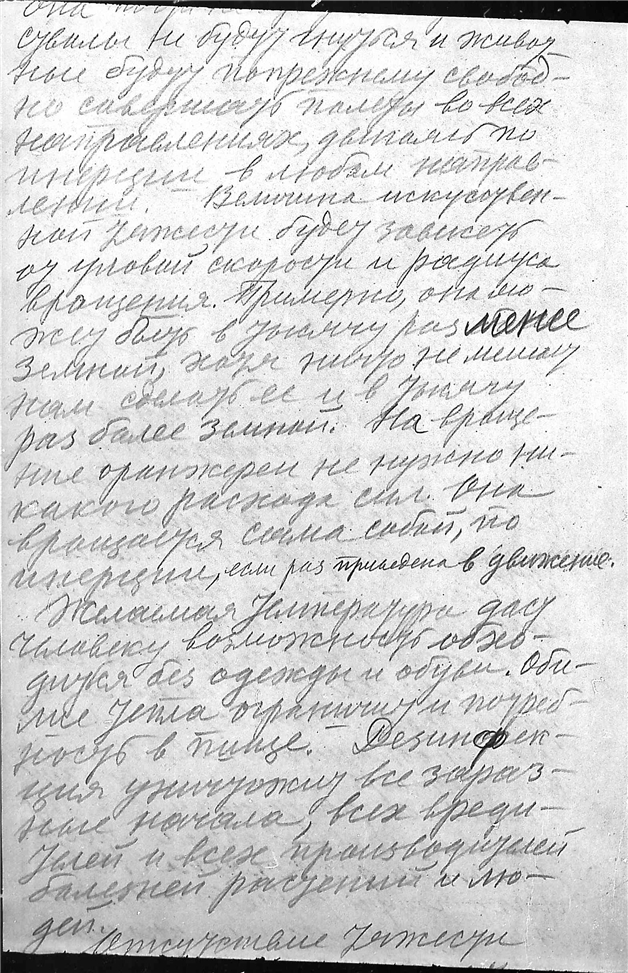 она
стволы не будут гнуться и живот-
ные будут попрежнему свобод-
но совершать полеты во всех
направлениях, двигаясь по
инерции в любом направ-
лении. Величина искусствен-
ной тяжести будет зависеть
от угловой скорости и радиуса
вращения. Примерно, она мо-
жет быть в тысячу раз менее
земной, хотя ничто не мешает
нам сделать ее и в тысячу
раз более земной. На враще-
ние оранжереи не нужно ни-
какого расхода сил. Она
вращается сама собой, по
инерции, если раз приведена в движение.
Желаемая температура даст
человеку возможность обхо-
диться без одежды и обуви. Оби-
лие тепла ограничит и потреб-
ность в пище. Дезинфек-
ция уничтожит все зараз-
ные начала, всех вреди-
телей и всех производителей
болезней растений и лю-
дей.
Отсутствие тяжести